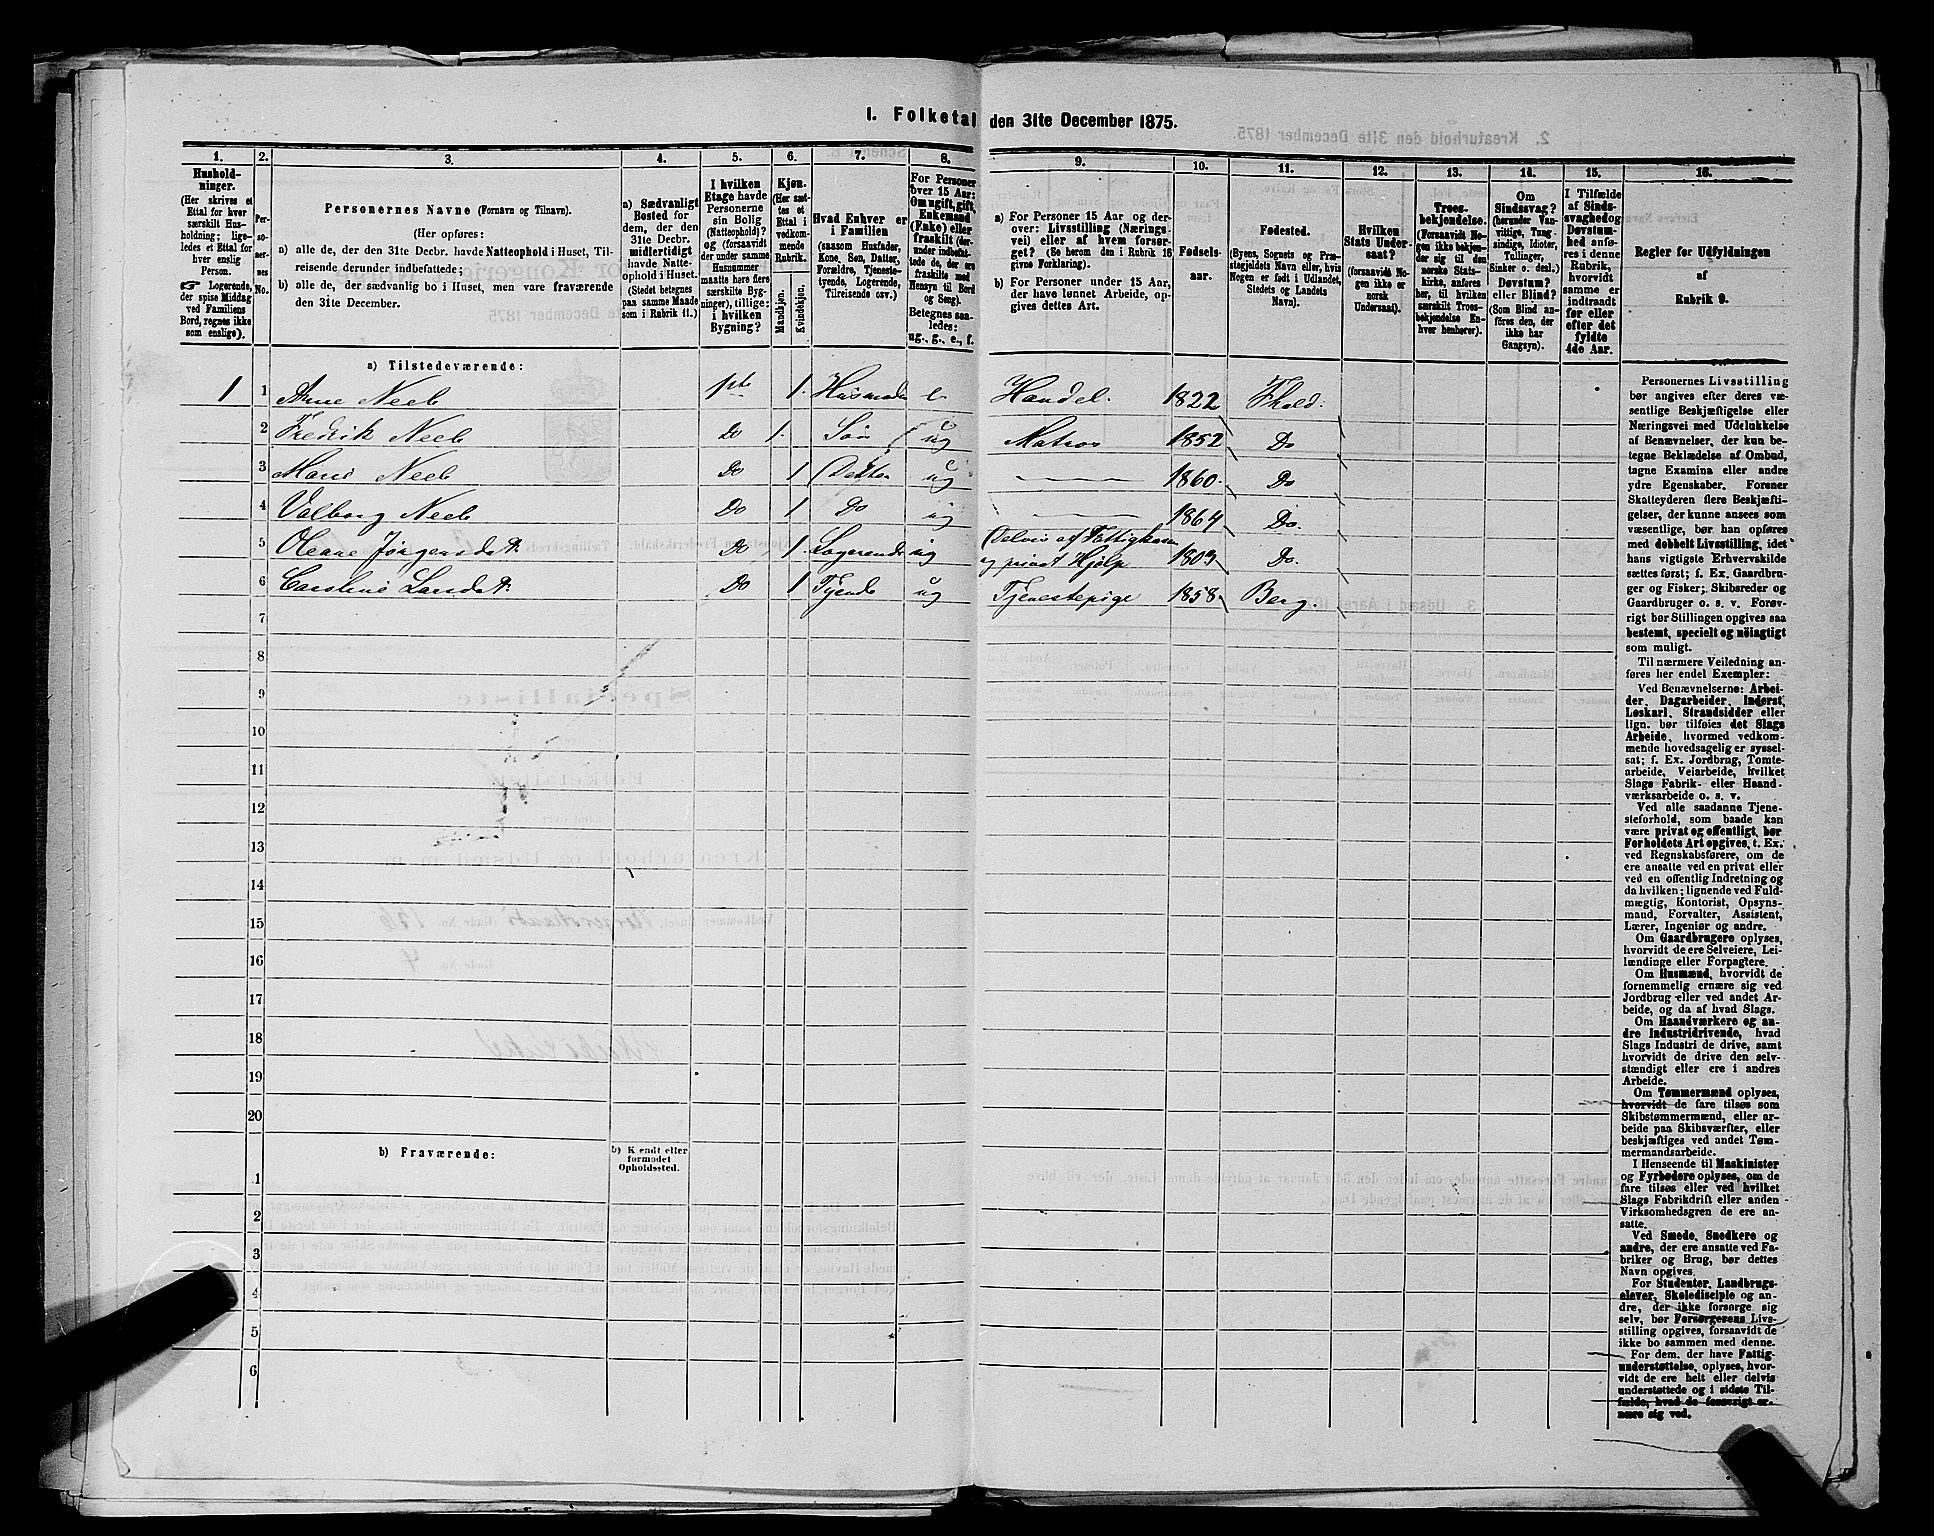 I. Folketal den 31te December 1875.
1. 2. 3. 4. 5. 6. 7. 8. 9. 10. 11. 12. 13. 14. 15. 16.
Husholdninger.
(Her skrives et
Ettal for hver
særskilt Husholdning;
ligeledes et Ettal for
hver enslig
Person.
☞ Logerende,
der spise Middag
ved Familiens
Bord, regnes ikke
som enslige).
Personernes No.
Personernes Navne (Fornavn og Tilnavn).
(Her opføres:
a) alle de, der den 31te Decbr. havde Natteophold i Huset, Tilreisende derunder indbefattede;
b) alle de, der sædvanlig bo i Huset, men vare fraværende
den 31te December.
a) Sædvanligt
Bosted for
dem, der den
31te Decbr.
midlertidigt
havde Natteophold i Huset.
(Stedet betegnes
paa samme Maade
som i Rubrik 11.)
I hvilken
Etage havde
Personerne
sin Bolig
(Natteophold)?
og (forsaavidt
der under samme
Husnummer
maatte høre flere
særskilte Bygninger), tillige:
i hvilken
Bygning?
Kjøn.
(Her sættes et
Ettal i
vedkommende
Rubrik.
Mandkjøn.
Kvindekjøn.
Hvad Enhver er
i Familien
(saasom Husfader,
Kone, Søn, Datter,
Forældre, Tjenestetyende, Logerende,
Tilreisende osv.)
For Personer
over 15 Aar:
Om ugift, gift,
Enkemand
(Enke) eller
fraskilt (derunder indbefattede de, der ere
fraskilte med
Hensyn til Bord
og Seng).
Betegnes saaledes:
ug., g., e., f.
a) For Personer 15 Aar og derover: Livsstilling (Næringsvei) eller af hvem forsørget? (Se herom den i Rubrik 16
givne Forklaring).
b) For Personer under 15 Aar,
der have lønnet Arbeide, opgives dettes Art.
Fødselsaar.
Fødested.
(Byens, Sognets og Præstegjeldets Navn eller, hvis
Nogen er født i Udlandet,
Stedets og Landets
Navn).
Hvilken
Stats Undersaat?
(forsaavidt Nogen ikke er
norsk
Undersaat).
Troesbekjendelse.
(Forsaavidt Nogen ikke bekjender sig til den
norske Statskirke, anføres
her, til hvilken
særskilt Troesbekjendelse Enhver henhører).
Om
Sindssvag?
(herunder Vanvittige, Tungsindige, Idioter,
Tullinger,
Sinker o. desl.)
Døvstum?
eller Blind?
(Som Blind anføres den, der
ikke har
Gangsyn).
I Tilfælde
af Sindssvaghed og
Døvstumhed anføres i denne
Rubrik,
hvorvidt
samme er
indtraadt
før eller
efter det
fyldte
4de Aar.
Regler for Udfyldningen
af
Rubrik 9.
a) Tilstedeværende:
1 1 Anne Neeb 1ste 1. e. Handel. 1822 Fhald.
2 Fredrik Neeb Do 1. Søn ug Matros 1852 Do
3 Marie Neeb Do 1 Datter ug 1860. Do
4 Valborg Neeb Do 1 Do ug 1864 Do.
5 Oleane Jørgensdt. Do 1. Logerende ug Delvis af Fattigkasse
og privat Hjælp 1809 Do.
6 Do 1 Tyende ug Tjenestepige 1858 Berg.
7
8
9
10
11
12
13
14
15
16
17
18
19
20
b) Fraværende:
b) Kendt eller
formodet
Opholdssted.
1
2
3
4
5
6
Personernes Livsstilling
bør angives efter deres væsentlige Beskjæftigelse eller
Næringsvei med Udelukkelse
af Benævnelser, der kun betegne Beklædelse af Ombud,
tagne Examina eller andre
ydre Egenskaber. Forener
Skatteyderen flere Beskjæftigelser, der kunne ansees som
væsentlige, bør han opføres
med dobbelt Livsstilling, idet
hans vigtigste Erhvervskilde
sættes først; f. Ex. Gaardbruger og Fisker; Skibsreder og
Gaardbruger o. s. v. Forøvrigt bør Stillingen opgives saa
bestemt, specielt og nøiagtigt
som muligt.
Til nærmere Veiledning anføres her endel Exempler:
Ved Benævnelserne: Arbeider, Dagarbeider, Inderst,
Løskarl, Strandsidder eller
lign. bør tilføies det Slags
Arbeide, hvormed vedkommende hovedsagelig er sysselsat; f. Ex. Jordbrug, Tomtearbeide, Veiarbeide, hvilket
Slags Fabrik- eller Haandværksarbeide o. s. v.
Ved alle saadanne Tjenesteforhold, som baade kan
være privat og offentligt, bør
Forholdets Art opgives, t. Ex.
ved Regnskabsførere, om de
ere ansatte ved en privat eller
ved en offentlig Indretning og
da hvilken; lignende ved Fuldmægtig, Kontorist, Opsynsmand, Forvalter, Assistent,
Lærer, Ingeniør og andre.
Om Gaardbrugere oplyses,
hvorvidt de ere Selveiere, Leilændinge eller Forpagtere.
Om Husmænd, hvorvidt de
fornemmelig ernære sig ved
Jordbrug eller ved andet Arbeide, og da af hvad Slags.
Om Haandværkere og andre Industridrivende, hvad
Slags Industri de drive, samt
hvorvidt de drive den selvstændigt eller ere i andres
Arbeide.
Om Tømmermænd oplyses,
hvorvidt de fare tilsøs som
Skibstømmermænd, eller arbeide paa Skibsværfter, eller
beskjæftiges ved andet Tømmermandsarbeide.
I Henseende til Maskinister
og Fyrbødere oplyses, om de
fare tilsøs eller ved hvilket
Slags Fabrikdrift eller anden
Virksomhedsgren de ere ansatte.
Ved Smede, Snedkere og
andre, der ere ansatte ved Fabriker og Brug, bør dettes
Navn opgives.
For Studenter, Landbrugselever, Skoledisciple og andre, der ikke forsørge sig
selv, bør Forsørgerens Livsstilling opgives, forsaavidt de
ikke bo sammen med denne.
For dem, der have Fattigunderstøttelse, oplyses, hvorvidt de ere helt eller delvis
understøttede og i sidste Tilfælde, hvad de forøvrigt ernære sig ved.